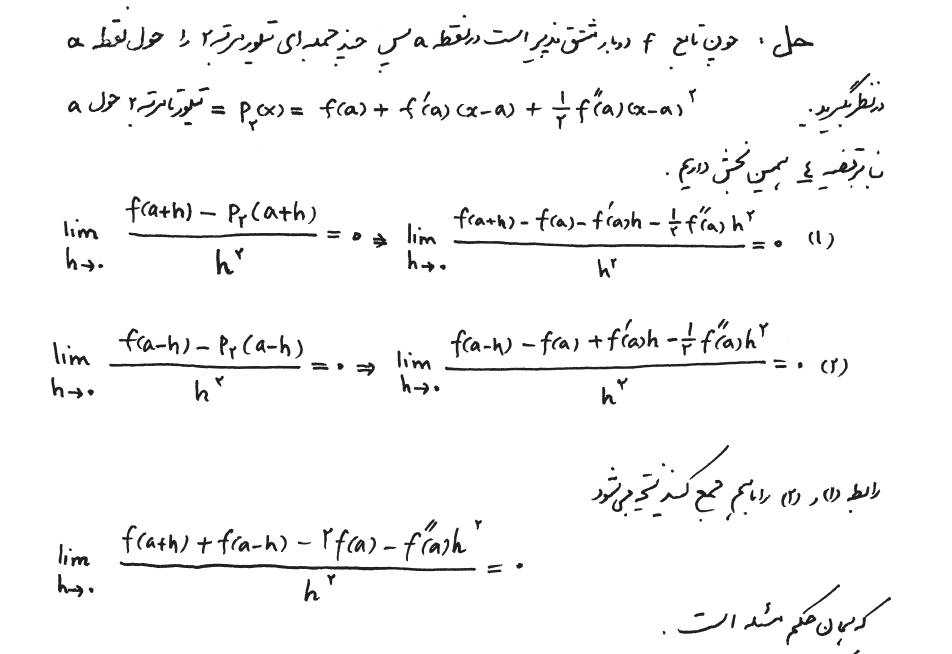 حل: چون تابع f دوبار مشتق پذیر است در نقطه a پس چند جمله ای تیلور مرتبه ۲ را حول نقطه a
در نظر بگیرید.
تیلور تا مرتبه ۲ حول a = P₂(x) = f(a) + f′(a)(x-a) + ½ f″(a)(x-a)²
بنا بر قضیه ٤ همین بخش داریم.
lim_{h→۰} (f(a+h) - P₂(a+h)) / h² = ۰ ⇒ lim_{h→۰} (f(a+h) - f(a) - f′(a)h - ½ f″(a)h²) / h² = ۰ (۱)
lim_{h→۰} (f(a-h) - P₂(a-h)) / h² = ۰ ⇒ lim_{h→۰} (f(a-h) - f(a) + f′(a)h - ½ f″(a)h²) / h² = ۰ (۲)
رابطه (۱) و (۲) را با هم جمع کنید نتیجه می‌شود
lim_{h→۰} (f(a+h) + f(a-h) - ۲f(a) - f″(a)h²) / h² = ۰
که همان حکم مسئله است.